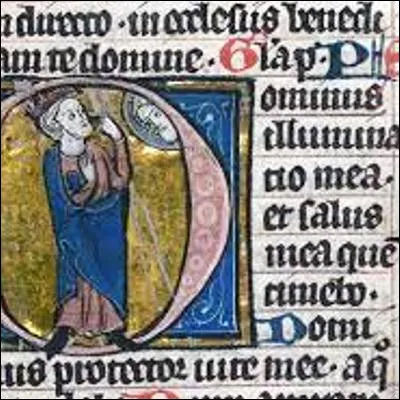 n directo · in ecclesiis benedi
am te domine · Gl'a p · Ps
Dominus
illumina
tio mea ·
et salus
mea quē
timebo ·
Domi
us protector uite mee · a q°